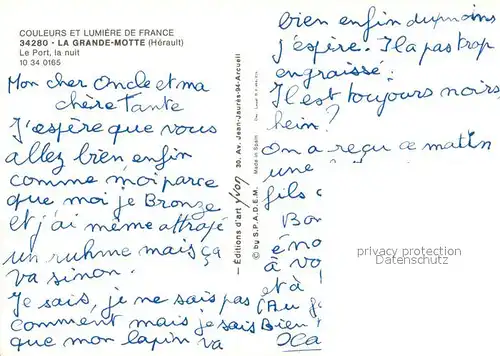 COULEURS ET LUMIÈRE DE FRANCE
34280 - LA GRANDE-MOTTE (Hérault)
Le Port, la nuit
10 34 0165
Mon cher Oncle et ma
chère Tante
J'espère que vous
allez bien enfin
comme moi parce
que moi je Bronze
et j'ai même attrapé
un ruhme mais ça
va sinon.
Je sais, je ne sais pas
comment mais je sais
que mon lapin va
— Editions d'art yvon 30, Av. Jean-Jaurès-94-Arcueil
© by S.P.A.D.E.M. Made in Spain
bien enfin du moins
j'espère. Il a pas trop
engraissé.
Il est toujours noirs,
hein?
On a reçu ce matin
une
fils
Bon
à vo
et à
(Au
Bien
privacy protection
Datenschutz